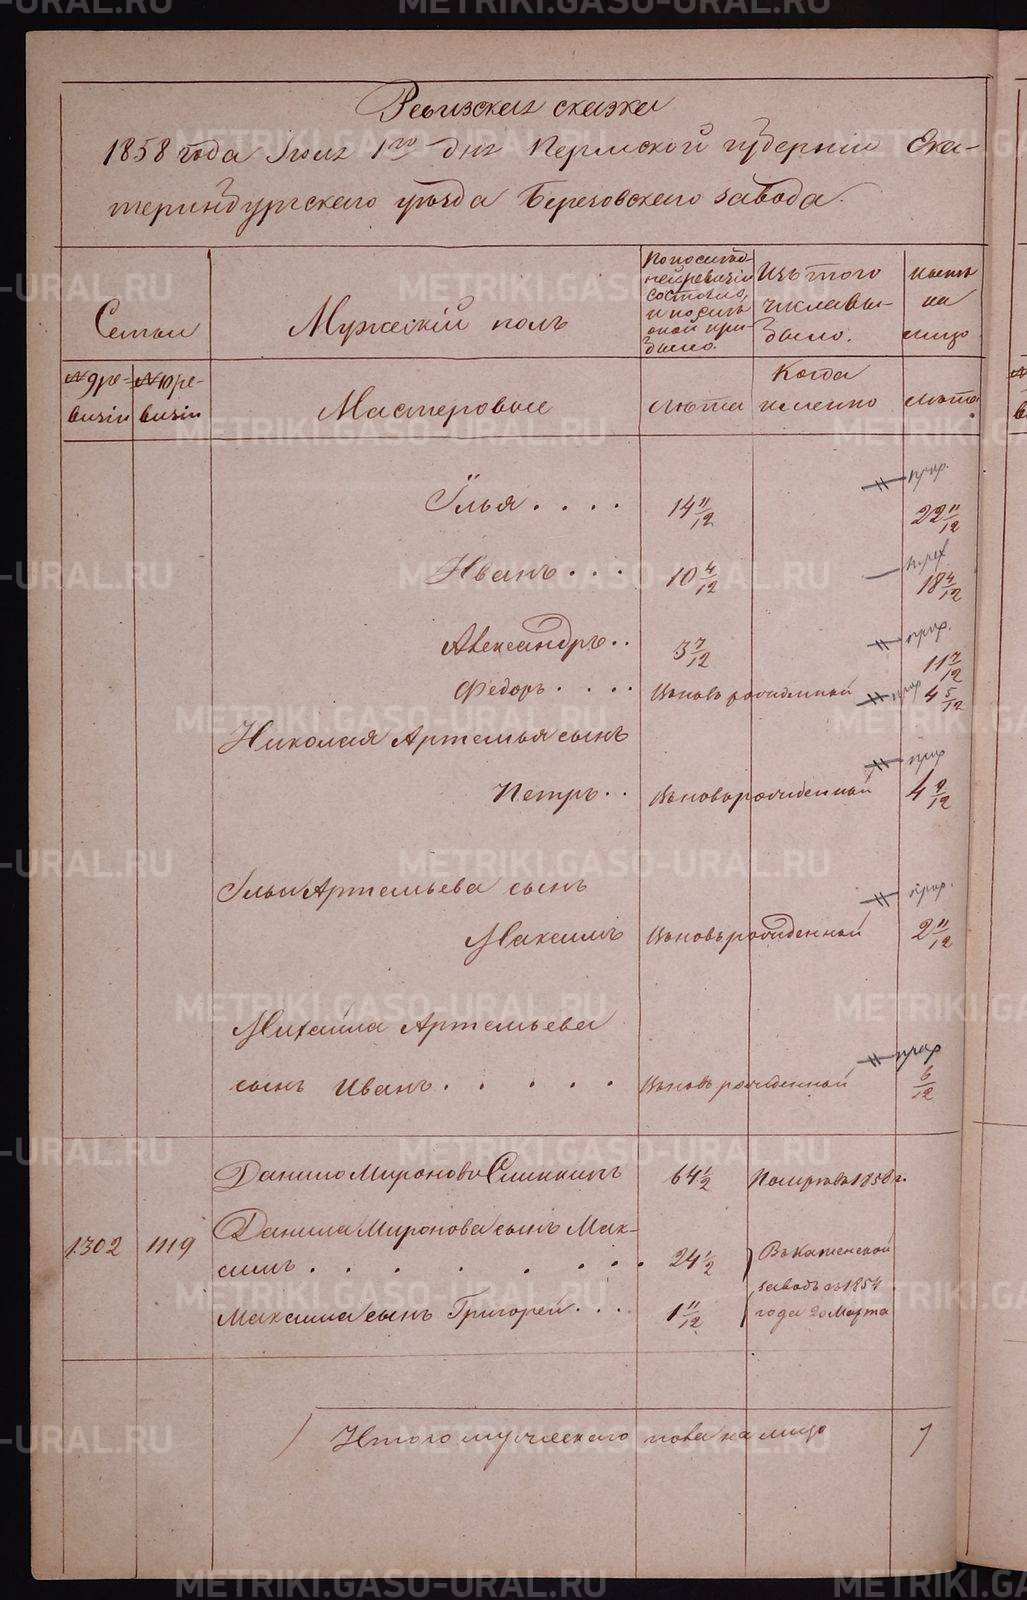 Ревизская сказка
1858 года Июня 1го дня Пермской губернии Ека-
теринбургскаго уезда Березовскаго завода.
Семьи
Мужескiй полъ
По послѣд-
ней ревизiи
состояло,
и послѣ
оной при-
было.
Изъ того
числа вы-
было.
Нынѣ
на
лицо
№ 9 ре-
визiи
№ 10 ре-
визiи
Мастеровые
лѣта
Когда
именно
лѣта
Илья . . . . 14 11/12 прих. 22 11/12
Иванъ . . . 10 4/12 прих 18 4/12
Александръ . . 3 7/12 прих. 11 7/12
Федоръ . . . . Вновь рожденной прих 4 5/12
Николая Артемья сынъ
Петръ . . Вновь рожденной прих 4 9/12
Ильи Артемьева сынъ
Максимъ Вновь рожденной прих. 2 11/12
Михайла Артемьева
сынъ Иванъ . . . . . Вновь рожденной прих 6/12
Данило Мироновъ 64 1/2 Померъ въ 1850 г.
1302 1119 Данила Миронова сынъ Мак-
симъ . . . . . . . . 24 1/2 Въ Каменской
заводъ съ 1854
Максима сынъ Григорей . . . 1 11/12 года 20 Марта
Итого мужескаго пола на лицо 7
METRIKI.GASO-URAL.RU